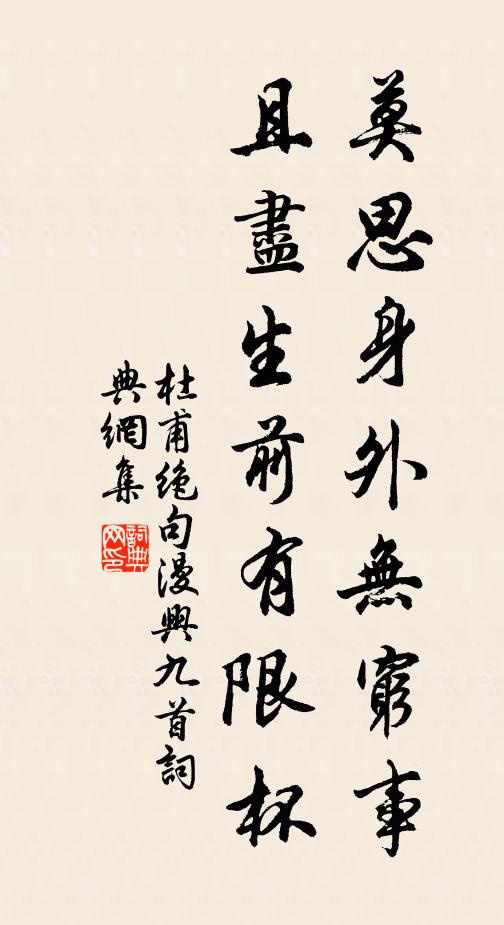 莫思身外無窮事
且盡生前有限杯
杜甫絶句漫興九首詞
典網集
詞典
网印